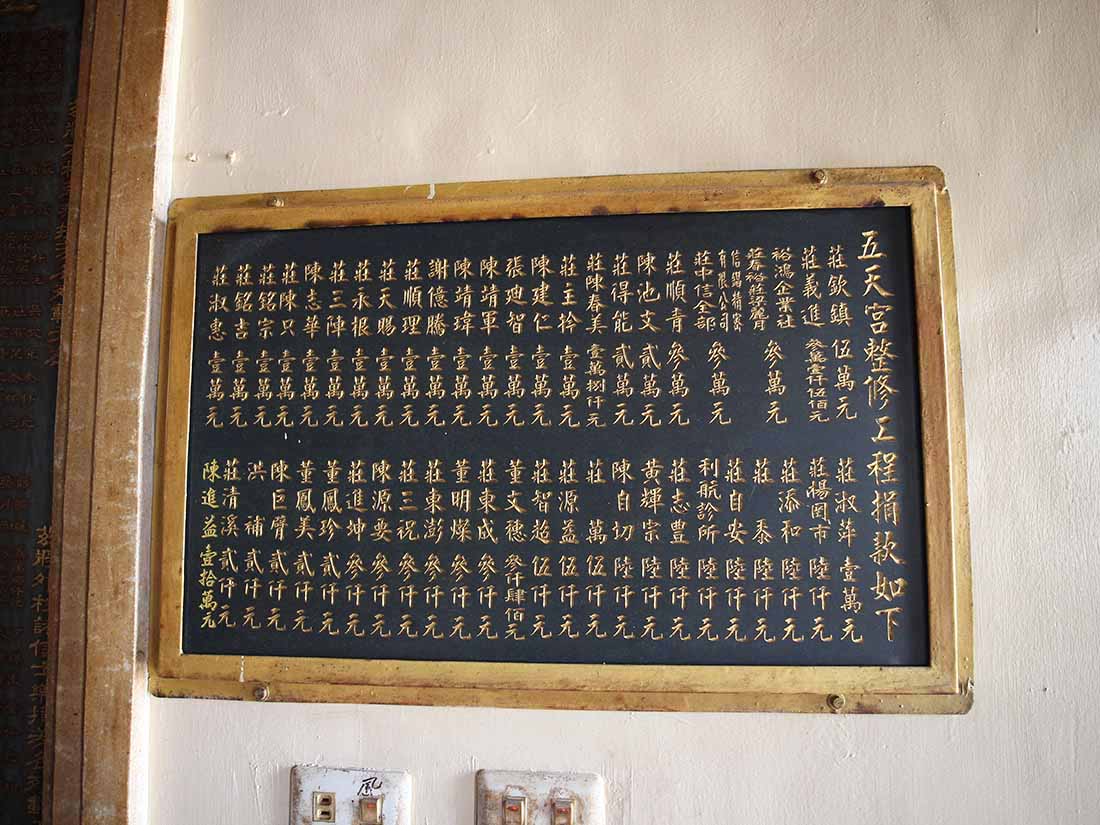 五天宮整修工程捐款如下
莊欽鎮 伍萬元
莊義進 參萬壹仟伍佰元
裕鴻企業社
莊春裕莊梁麗月 參萬元
有限公司
莊中信全部 參萬元
莊順青 參萬元
陳池文 貳萬元
莊得能 貳萬元
莊陳春美 壹萬捌仟元
莊主拎 壹萬元
陳建仁 壹萬元
張廸智 壹萬元
陳靖軍 壹萬元
陳靖瑋 壹萬元
謝億騰 壹萬元
莊順理 壹萬元
莊天賜 壹萬元
莊永根 壹萬元
莊三陣 壹萬元
陳志華 壹萬元
莊陳只 壹萬元
莊銘宗 壹萬元
莊銘吉 壹萬元
莊淑惠 壹萬元
莊淑萍 壹萬元
莊楊罔市 陸仟元
莊添和 陸仟元
莊泰 陸仟元
莊自安 陸仟元
利航診所 陸仟元
莊志豊 陸仟元
黃輝宗 陸仟元
陳自切 陸仟元
莊萬 伍仟元
莊源益 伍仟元
莊智超 伍仟元
董文德 參仟肆佰元
莊東成 參仟元
董明燦 參仟元
莊東澎 參仟元
莊三祝 參仟元
陳源安 參仟元
莊進坤 參仟元
董鳳珍 貳仟元
董鳳美 貳仟元
陳巨臂 貳仟元
洪補 貳仟元
莊清溪 貳仟元
陳進益 壹拾萬元
風